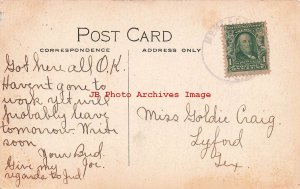 POST CARD
CORRESPONDENCE
ADDRESS ONLY
Got here all O.K.
Havent gone to
work yet, will
probably leave
tomorrow. Write
soon
Your Bud.
Joe.
Give my
regards to Jud
Miss Goldie Craig.
Lyford
Tex.
© JB Archives, Inc.